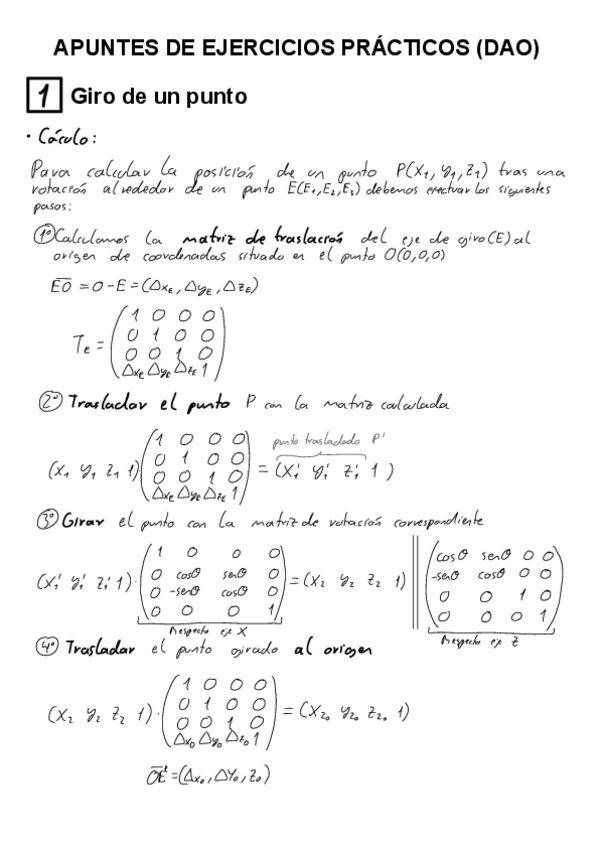 APUNTES DE EJERCICIOS PRÁCTICOS (DAO)
1 Giro de un punto
· Cáculo:
Para calcular la posición de un punto P(x₁, y₁, z₁) tras una
rotación alrededor de un punto E(E₁,E₂,E₃) debemos efectuar los siguientes
pasos:
1º Calculamos la matriz de traslación del eje de giro (E) al
origen de coordenadas situado en el punto O(0,0,0)
EO = O - E = (Δx_E, Δy_E, Δz_E)
T_E =
1 0 0 0
0 1 0 0
0 0 1 0
Δx_E Δy_E Δz_E 1
2º Trasladar el punto P con la matriz calculada
punto trasladado P'
1 0 0 0
0 1 0 0
(x₁ y₁ z₁ 1) = (x₁' y₁' z₁' 1)
0 0 1 0
Δx_E Δy_E Δz_E 1
3º Girar el punto con la matriz de rotación correspondiente
1 0 0 0
0 cosθ senθ 0
(x₁' y₁' z₁' 1) · = (x₂ y₂ z₂ 1)
0 -senθ cosθ 0
0 0 0 1
Respecto eje X
cosθ senθ 0 0
-senθ cosθ 0 0
0 0 1 0
0 0 0 1
Respecto eje Z
4º Trasladar el punto girado al origen
1 0 0 0
0 1 0 0
(x₂ y₂ z₂ 1) · = (x₂₀ y₂₀ z₂₀ 1)
0 0 1 0
Δx₀ Δy₀ Δz₀ 1
OE = (Δx₀, ΔY₀, z₀)